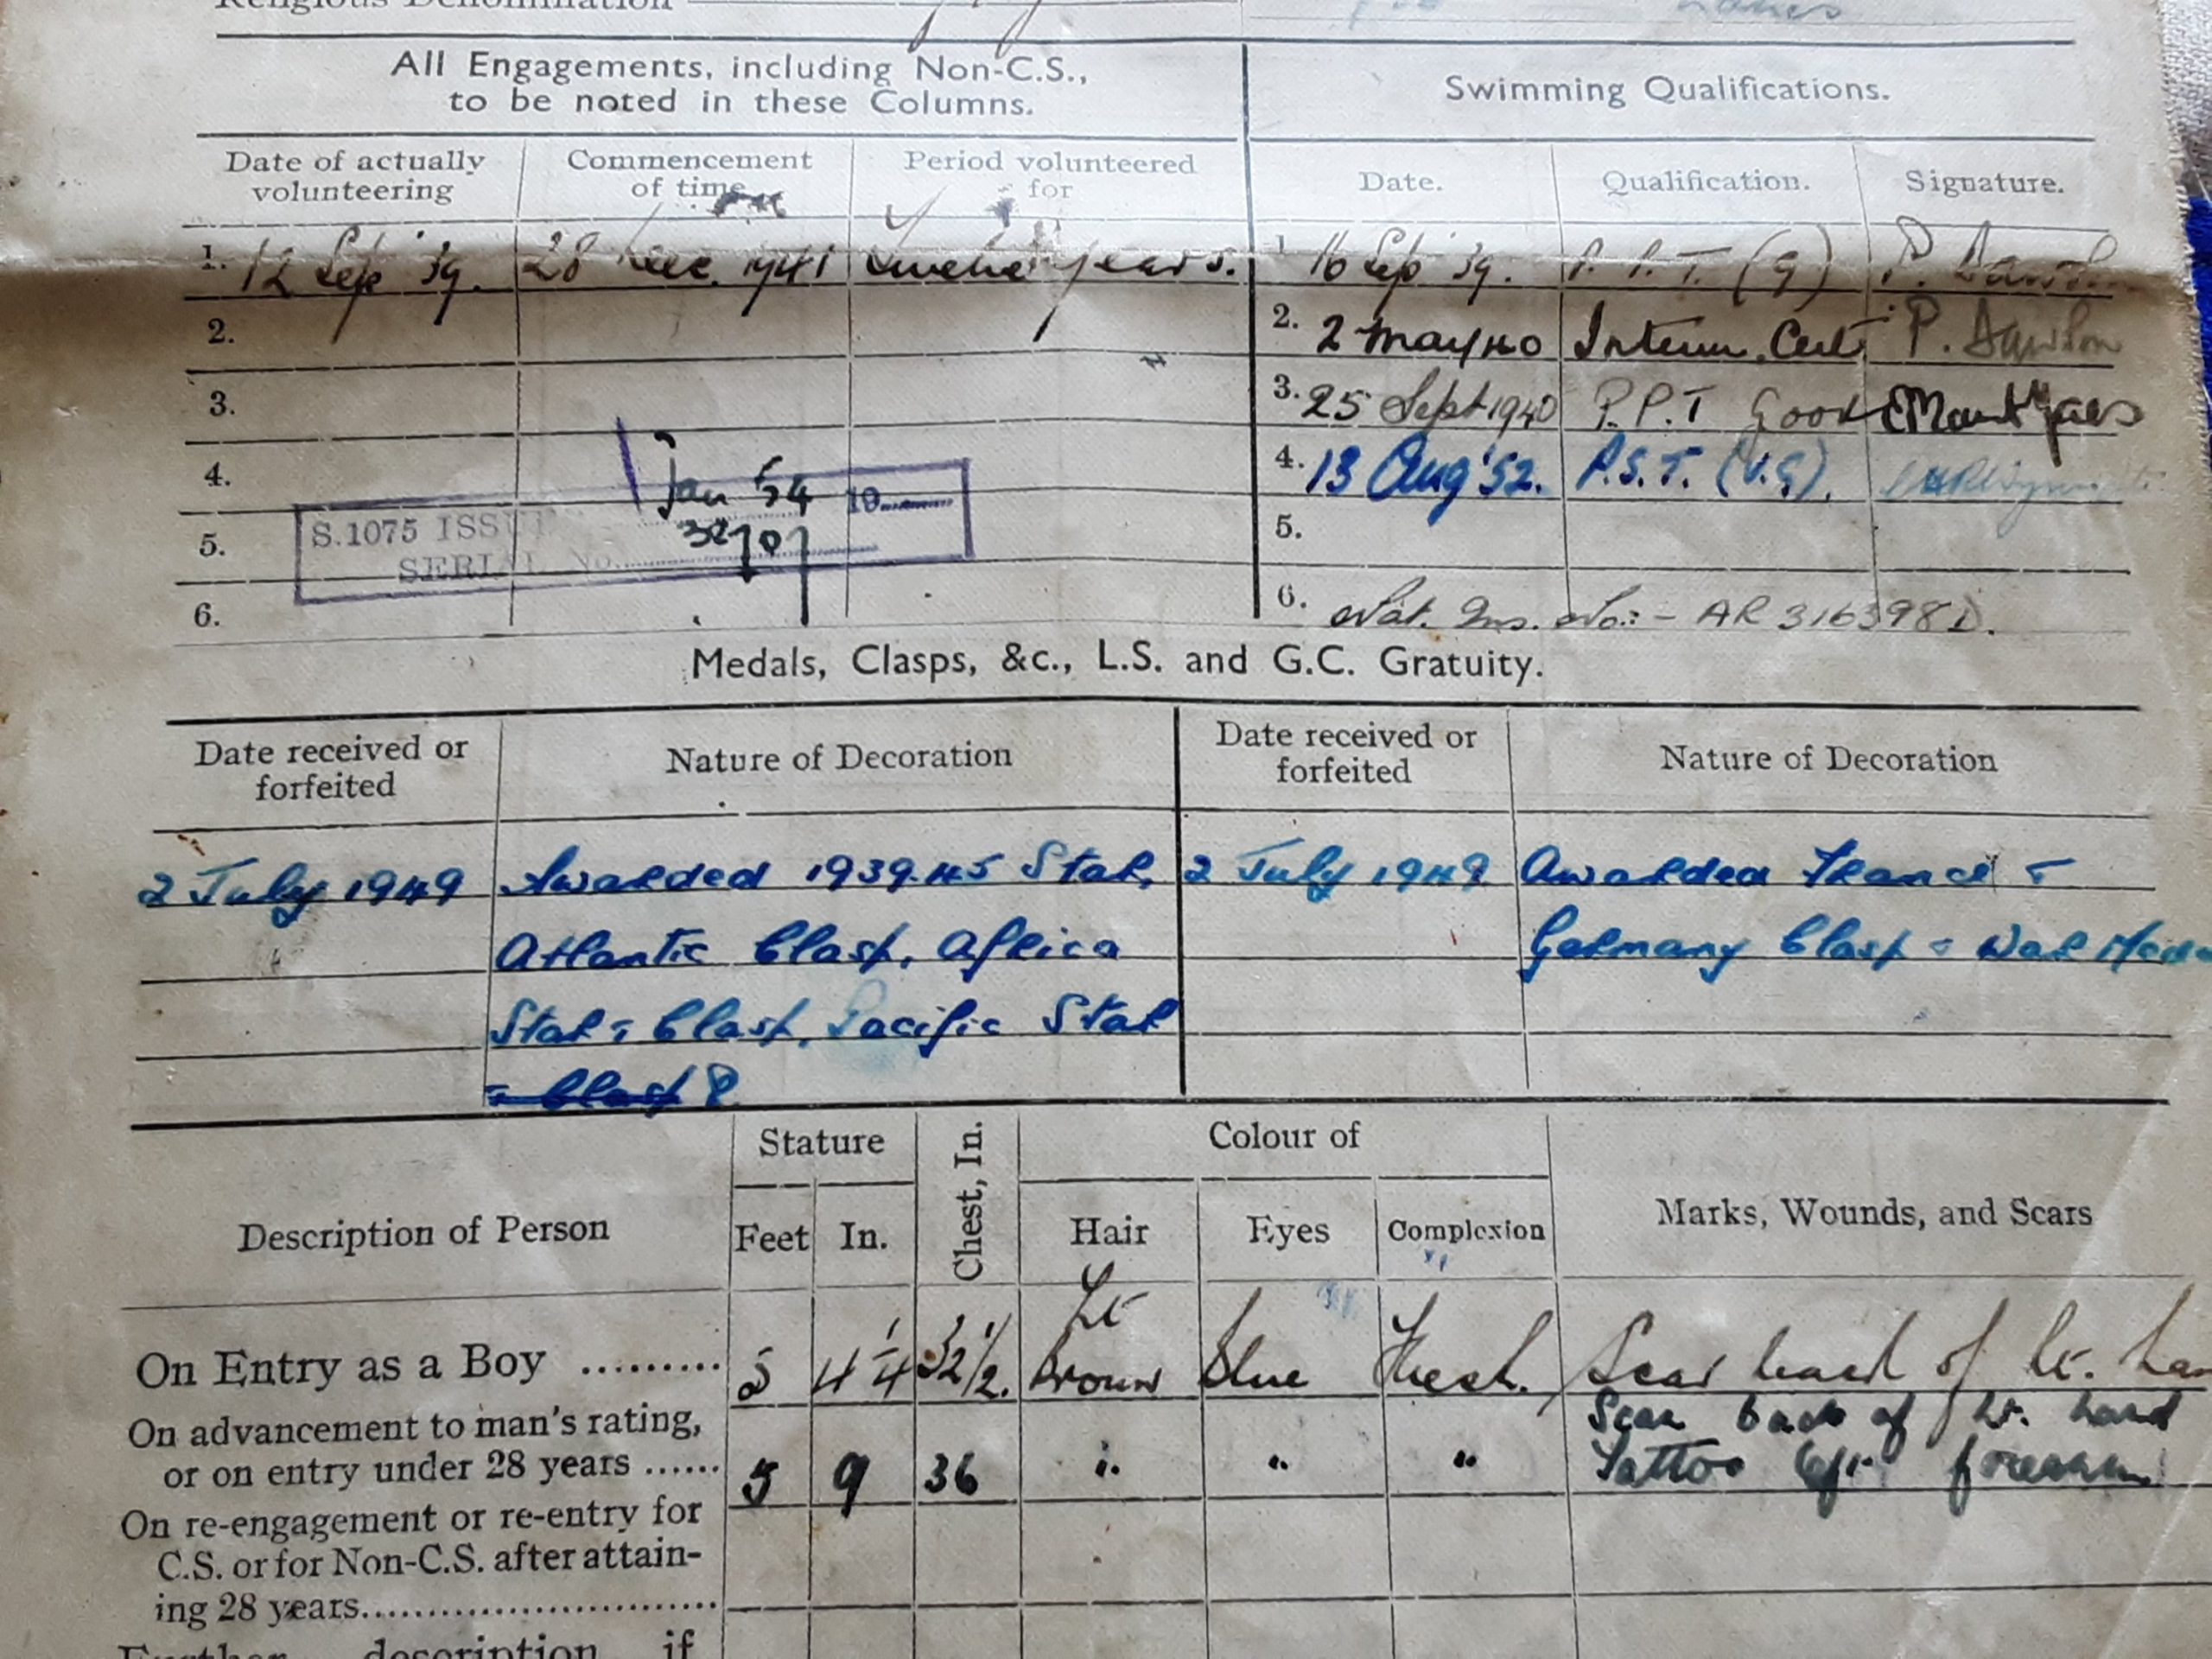 Religious Denomination
All Engagements, including Non-C.S.,
to be noted in these Columns.
Swimming Qualifications.
Date of actually volunteering
Commencement of time
Period volunteered for
Date.
Qualification.
Signature.
1. 12 Sep '39. 28 Dec. 1941 Twelve years.
1 16 Sep '39. P.P.T. (G) P.
2.
2. 2 May 40 Interm. Cert. P. Dawson
3.
3. 25 Sept 1940 P.P.T Good
4.
4. 13 Aug '52. P.S.T. (V.G).
Jan 54 19
S.1075 ISSUED
5.
5.
SERIAL No.
6.
6. Nat. Ins. No.:- AR 316398D.
Medals, Clasps, &c., L.S. and G.C. Gratuity.
Date received or forfeited
Nature of Decoration
Date received or forfeited
Nature of Decoration
2 July 1949 Awarded 1939.45 Star,
Atlantic Clasp, Africa
Star & Clasp, Pacific Star
& Clasp
2 July 1949 Awarded France &
Germany Clasp & War Meda
Description of Person
Stature
Feet In.
Chest, In.
Colour of
Hair Eyes Complexion
Marks, Wounds, and Scars
On Entry as a Boy ......... 5 4 1/4 32 1/2. Lt Brown Blue Fresh. Scar back of lt. han
On advancement to man's rating,
or on entry under 28 years ...... 5 9 36 " " "
Scar back of lt. hand
Tattoo left forearm
On re-engagement or re-entry for
C.S. or for Non-C.S. after attain-
ing 28 years
Further description if